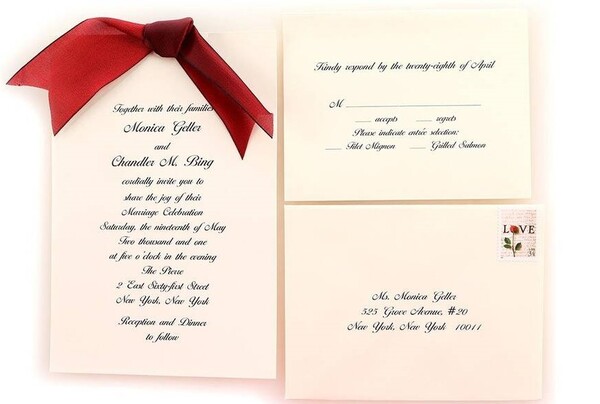 Together with their families
Monica Geller
and
Chandler M. Bing
cordially invite you to
share the joy of their
Marriage Celebration
Saturday, the nineteenth of May
Two thousand and one
at five o'clock in the evening
The Pierre
2 East Sixty-first Street
New York, New York
Reception and Dinner
to follow
Kindly respond by the twenty-eighth of April
M
accepts regrets
Please indicate entrée selection:
Filet Mignon Grilled Salmon
LOVE
34
Ms. Monica Geller
525 Grove Avenue, #20
New York, New York 10011